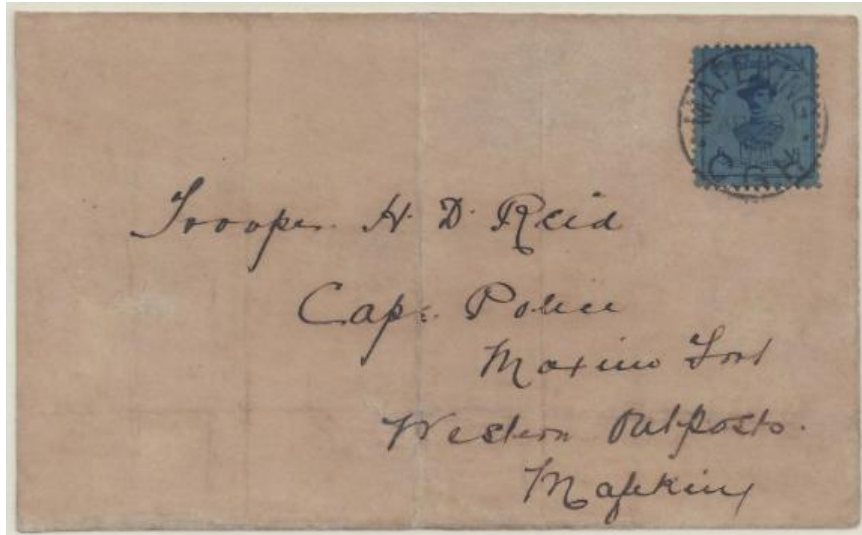 MAFEKING
C.G.H.
Trooper H. D. Reid
Cape Police
Maxim Fort
Western Outposts.
Mafeking